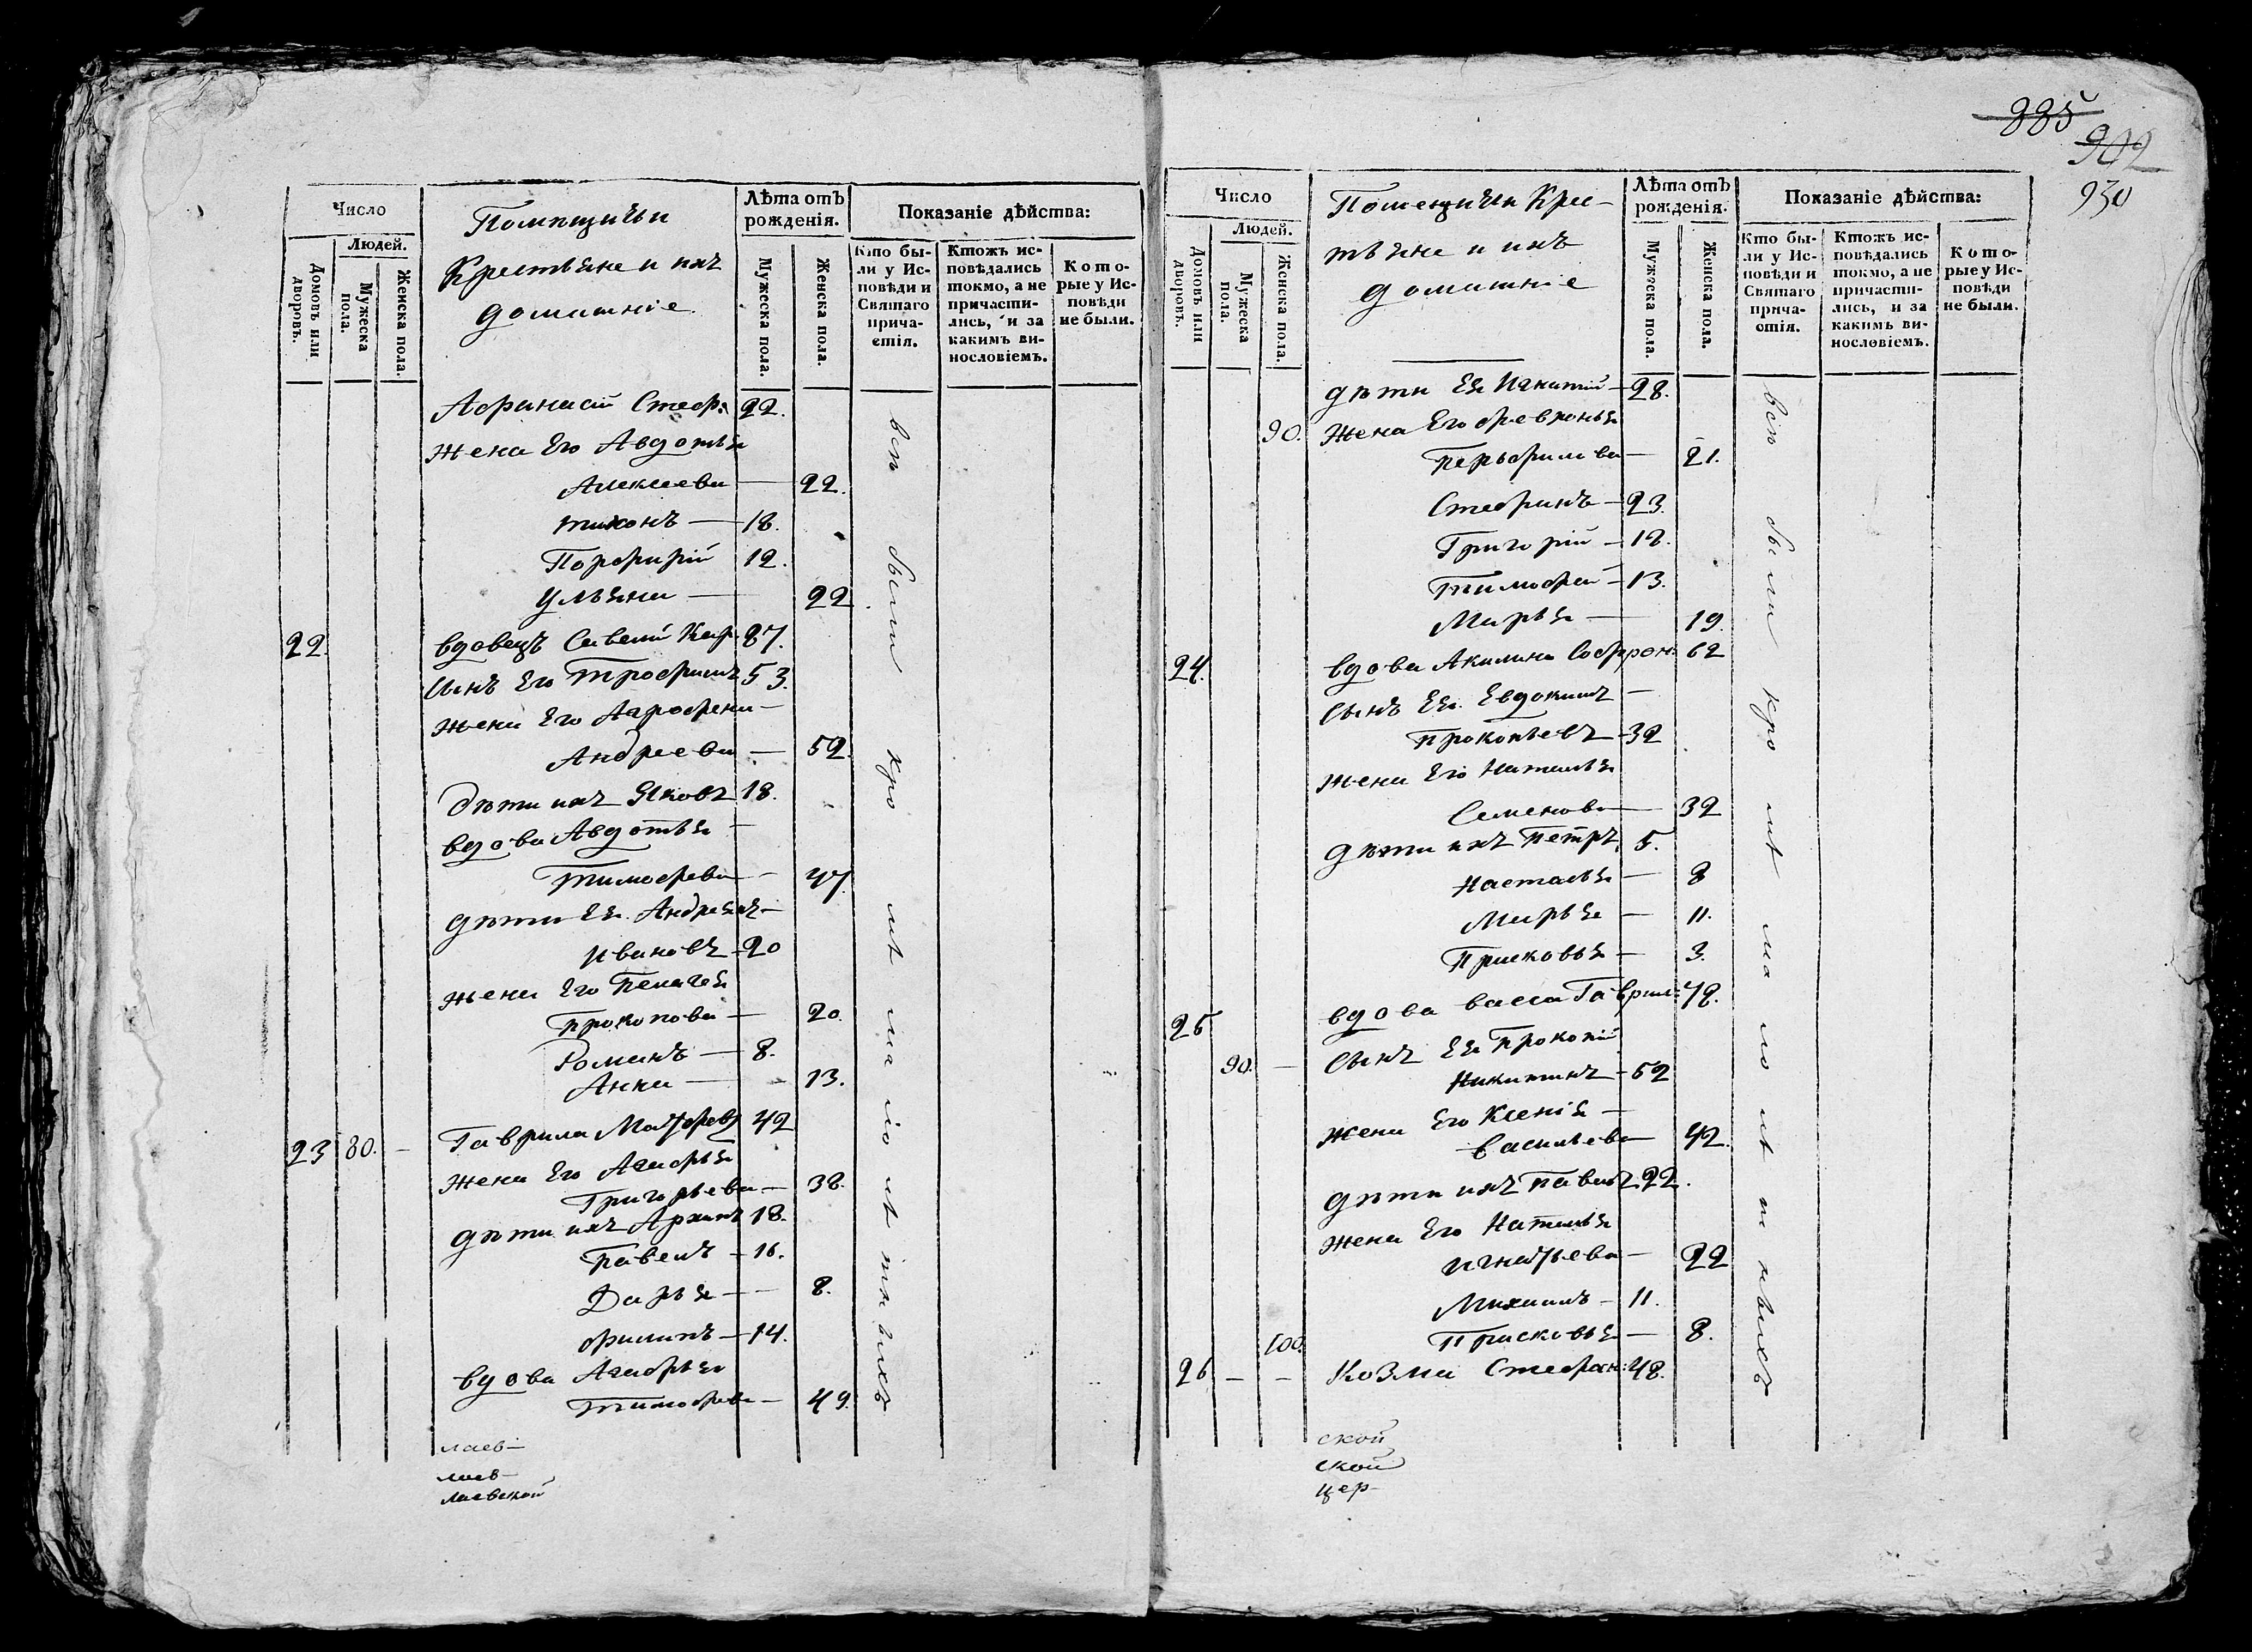 885
902
930
Число
Людей.
Домовъ или дворовъ.
Мужеска пола.
Женска пола.
Помещичьи
Крестьяне и ихъ
домашніе
Лѣта отъ рожденія.
Мужеска пола.
Женска пола.
Показаніе дѣйства:
Кто бы-
ли у Ис-
повѣди и
Святаго
прича-
стія.
Ктожъ ис-
повѣдались
токмо, а не
причасти-
лись, и за
какимъ ви-
нословіемъ.
Кото-
рые у Ис-
повѣди
не были.
Афанасій Стеф: 22.
жена Его Авдотья
Алексеева — 22.
тихонъ — 18.
Порфирій 12.
Ульяна — 22.
22. вдовецъ Савелій Кар. 87.
Сынъ Его Трофимъ 53.
жена Его Аграфена —
Андреева — 52.
Дѣти ихъ Яковъ 18.
вдова Авдотья —
Тимофева — 47
дѣти Ея Андреянъ —
Ивановъ — 20
жена Его Пелагея
Прокопова — 20.
Романъ — 8.
Анна — 13.
23 80. — Гаврила Матфеевъ 42
жена Его Агафья
Григорьева — 38.
дѣти ихъ Архипъ 18.
Павелъ — 16.
Дарья — 8.
филипъ — 14.
вдова Агафья
Тимофева — 49.
всѣ были кромѣ малолѣтнихъ
лаев-
лаев-
лаевской
Число
Людей.
Домовъ или дворовъ.
Мужеска пола.
Женска пола.
Помещичьи Крес-
тьяне и ихъ
домашніе
Лѣта отъ рожденія.
Мужеска пола.
Женска пола.
Показаніе дѣйства:
Кто бы-
ли у Ис-
повѣди и
Святаго
прича-
стія.
Ктожъ ис-
повѣдались
токмо, а не
причасти-
лись, и за
какимъ ви-
нословіемъ.
Кото-
рые у Ис-
повѣди
не были.
дѣти Ея Игнатій — 28.
90. Жена Его февронья
Перьфилева — 21.
Стефанъ — 23.
Григорій — 18.
Тимофей — 13.
Марья — 19.
24. вдова Акилина Софрон: 62
Сынъ Ея Евдокимъ —
Прокопьевъ — 32
жена Его Наталья
Семенова — 32
дѣти ихъ Петръ 5.
Настасья — 8
Марья — 11.
Прасковья — 3.
25 вдова васса Гаврил: 78.
90. — Сынъ Ея Прокопій
Никитинъ — 52
Жена Его Ксенія —
васильева — 42.
дѣти ихъ Павелъ 22.
Жена Его Наталья
Игнатьева — 22
Михаилъ — 11.
100. Прасковья — 8.
26 — — Козма Стефан: 48.
всѣ были кромѣ малолѣтнихъ
ской
ской
цер-